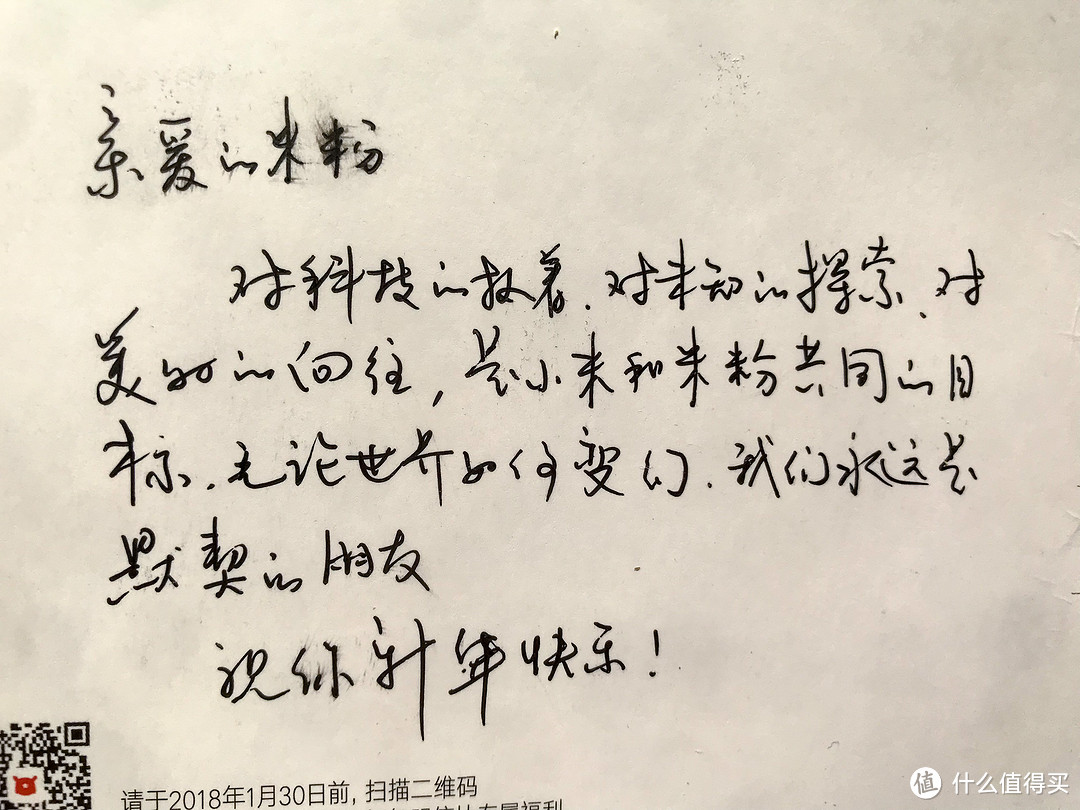 亲爱的米粉
对科技的执着、对未知的探索、对
美好的向往，是小米和米粉共同的目
标。无论世界如何变幻、我们永远是
默契的朋友
祝你新年快乐！
请于2018年1月30日前，扫描二维码
专属福利
值 什么值得买